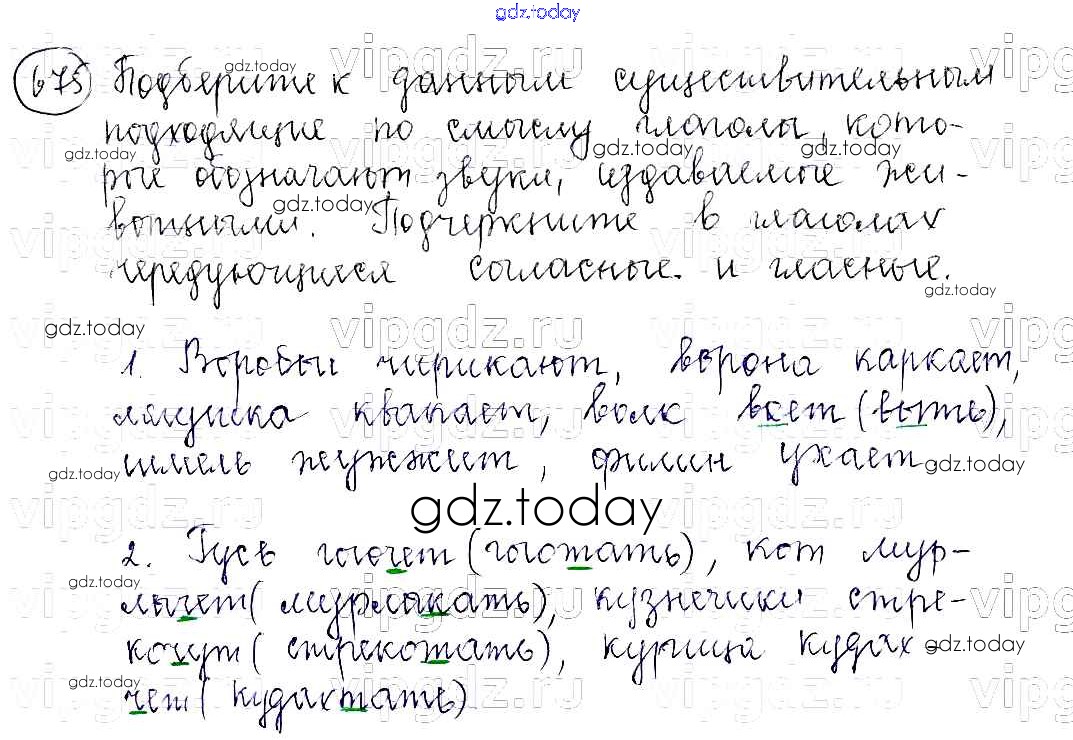 gdz.today
675 Подберите к данным существительным
подходящие по смыслу глаголы, кото-
рые обозначают звуки, издаваемые жи-
вотными. Подчеркните в глаголах
чередующиеся согласные и гласные.
1. Воробьи чирикают, ворона каркает,
лягушка квакает, волк воет (выть),
шмель жужжит, филин ухает
gdz.today
2. Гусь гогочет (гоготать), кот мур-
лычет (мурлыкать), кузнечики стре-
кочут (стрекотать), курица кудах-
чет (кудахтать)